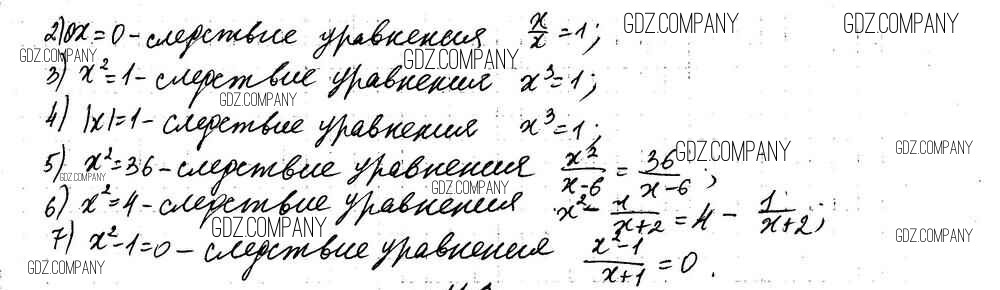 2) 0x = 0 - следствие уравнения x/x = 1;
3) x² = 1 - следствие уравнения x³ = 1;
4) |x| = 1 - следствие уравнения x³ = 1;
5) x² = 36 - следствие уравнения x²/(x-6) = 36/(x-6);
6) x² = 4 - следствие уравнения x² - 1/(x+2) = 4 - 1/(x+2);
7) x² - 1 = 0 - следствие уравнения (x²-1)/(x+1) = 0.
GDZ.COMPANY
GDZ.COMPANY
GDZ.COMPANY
GDZ.COMPANY
GDZ.COMPANY
GDZ.COMPANY
GDZ.COMPANY
GDZ.COMPANY
GDZ.COMPANY
GDZ.COMPANY
GDZ.COMPANY
GDZ.COMPANY